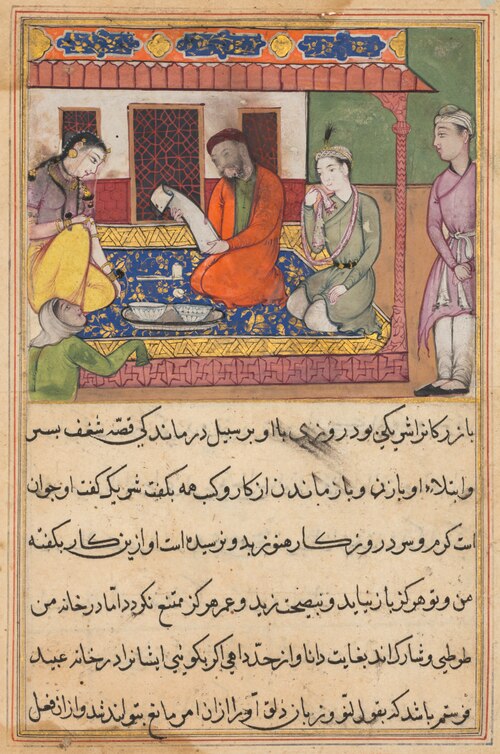 بازرکانرا شریکی بود روزی با او بر سبیل درماندکی قصّه شغف پسر
وابتلاء او بازن و باز ماندن از کار و کسب همه بکفت شریک کفت او جوان
است کرم و سرد روزکار هنوز ندیده و نرسیده است او ازین کار بکفته
من و تو هرکز باز نیاید و نبصیحت زید و عمر هرکز ممتنع نکردد امّا در خانه من
طوطیی و شارک اند بغایت دانا و از حدّ داهی اکر بکویی ایشانرا در خانه عبید
فرستم باشد که بقول و زبان دلق او را ازان امر مانع توانند شد و از ان فعل